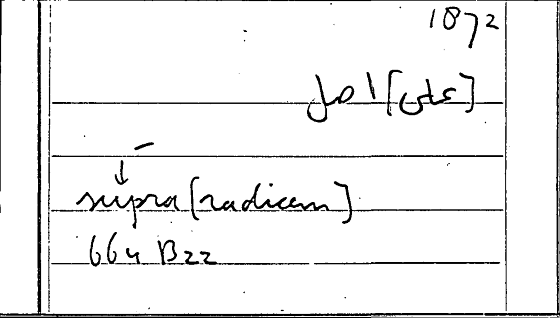 1872
[على] اصل
supra [radicem]
664 B22